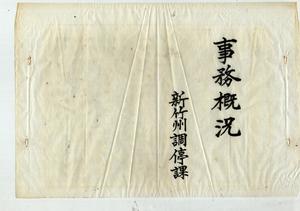 事務概況
新竹州調停課